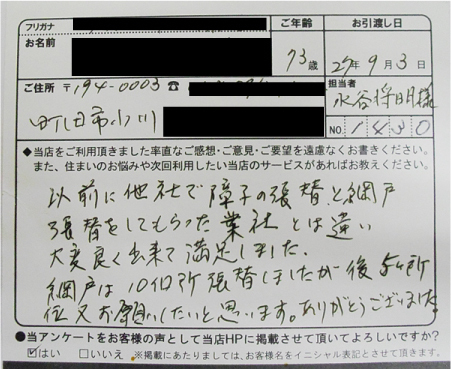 フリガナ
ご年齢
お引渡し日
お名前
73歳
27年9月3日
ご住所 〒194-0003 ☎
担当者
水谷将明様
町田市小川
NO. 1430
◆当店をご利用頂きました率直なご感想・ご意見・ご要望を遠慮なくお書きください。
また、住まいのお悩みや次回利用したい当店のサービスがあればお教えください。
以前に他社で障子の張替と網戸
張替をしてもらった業社とは違い
大変良く出来て満足しました。
網戸は10個所張替しましたが後5ヶ所
位又お願いしたいと思います。ありがとうございました。
●当アンケートをお客様の声として当店HPに掲載させて頂いてよろしいですか?
☑はい □いいえ ※掲載にあたりましては、お客様名をイニシャル表記とさせて頂きます。